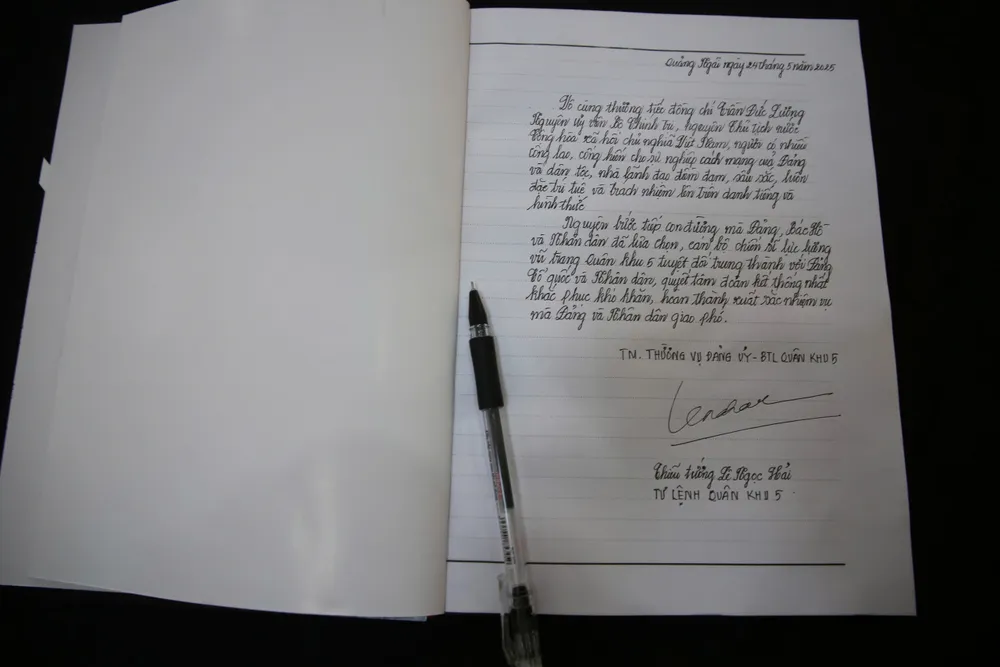 Quảng Ngãi ngày 24 tháng 5 năm 2025
Vô cùng thương tiếc đồng chí Trần Đức Lương
Nguyên ủy viên Bộ Chính trị, nguyên Chủ tịch nước
Cộng hòa xã hội chủ nghĩa Việt Nam, người có nhiều
công lao, cống hiến cho sự nghiệp cách mạng của Đảng
và dân tộc, nhà lãnh đạo điềm đạm, sâu sắc, luôn
đặt trí tuệ và trách nhiệm lên trên danh tiếng và
hình thức.
Nguyện bước tiếp con đường mà Đảng, Bác Hồ
và Nhân dân đã lựa chọn, cán bộ chiến sĩ lực lượng
vũ trang Quân khu 5 tuyệt đối trung thành với Đảng
Tổ quốc và Nhân dân, quyết tâm đoàn kết thống nhất
khắc phục khó khăn, hoàn thành xuất sắc nhiệm vụ
mà Đảng và Nhân dân giao phó.
TM. THƯỜNG VỤ ĐẢNG ỦY - BTL QUÂN KHU 5
Thiếu tướng Lê Ngọc Hải
TƯ LỆNH QUÂN KHU 5